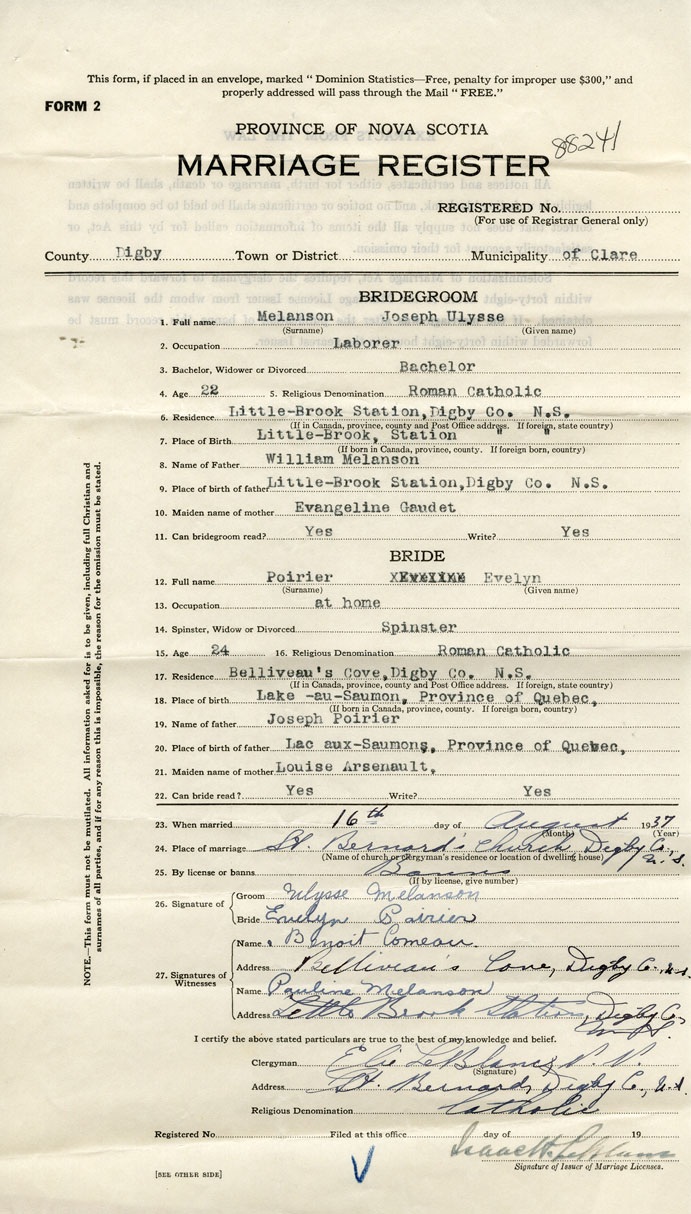 This form, if placed in an envelope, marked " Dominion Statistics—Free, penalty for improper use $300," and
properly addressed will pass through the Mail " FREE."
FORM 2
PROVINCE OF NOVA SCOTIA
88241
MARRIAGE REGISTER
REGISTERED No.
(For use of Registrar General only)
County Digby Town or District Municipality of Clare
BRIDEGROOM
1. Full name Melanson Joseph Ulysse
(Surname) (Given name)
2. Occupation Laborer
3. Bachelor, Widower or Divorced Bachelor
4. Age 22 5. Religious Denomination Roman Catholic
6. Residence Little-Brook Station,Digby Co. N.S.
(If in Canada, province, county and Post Office address. If foreign, state country)
7. Place of Birth Little-Brook, Station " "
(If born in Canada, province, county. If foreign born, country)
8. Name of Father William Melanson
9. Place of birth of father Little-Brook Station,Digby Co. N.S.
10. Maiden name of mother Evangeline Gaudet
11. Can bridegroom read? Yes Write? Yes
BRIDE
12. Full name Poirier Evelyn
(Surname) (Given name)
13. Occupation at home
14. Spinster, Widow or Divorced Spinster
15. Age 24 16. Religious Denomination Roman Catholic
17. Residence Belliveau's Cove,Digby Co. N.S.
(If in Canada, province, county and Post Office address. If foreign, state country)
18. Place of birth Lake -au-Saumon, Province of Quebec,
(If born in Canada, province, county. If foreign born, country)
19. Name of father Joseph Poirier
20. Place of birth of father Lac aux-Saumons, Province of Quebec,
21. Maiden name of mother Louise Arsenault,
22. Can bride read? Yes Write? Yes
23. When married 16th day of August 1937
(Month) (Year)
24. Place of marriage St. Bernard's Church, Digby Co., N.S.
(Name of church or clergyman's residence or location of dwelling house)
25. By license or banns Banns
(If by license, give number)
26. Signature of
Groom Ulysse Melanson
Bride Evelyn Poirier
27. Signatures of Witnesses
Name Benoit Comeau.
Address Belliveau's Cove, Digby Co., N.S.
Name Pauline Melanson
Address Little Brook Station, Digby Co., N.S.
I certify the above stated particulars are true to the best of my knowledge and belief.
Clergyman Elie LeBlanc, P. P.
(Signature)
Address St. Bernard, Digby Co., N.S.
Religious Denomination Catholic
Registered No. Filed at this office day of 19
Isaac H. LeBlanc
Signature of Issuer of Marriage Licenses.
[SEE OTHER SIDE]
NOTE.—This form must not be mutilated. All information asked for is to be given, including full Christian and
surnames of all parties, and if for any reason this is impossible, the reason for the omission must be stated.